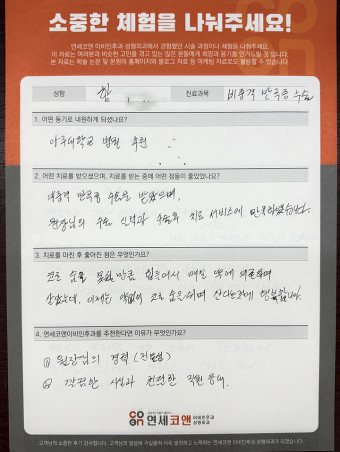 소중한 체험을 나눠주세요!
연세코앤 이비인후과 성형외과에서 경험했던 시술 과정이나 체험을 나눠주세요.
이 자료는 여러분과 비슷한 고민을 겪고 있는 많은 분들에게 희망과 용기를 안겨드릴 것 입니다.
본 자료는 학술 논문 및 본원의 홈페이지와 블로그 자료 등 마케팅 자료로도 활용될 수 있습니다.
성함 함 진료과목 비중격 만곡증 수술
1. 어떤 동기로 내원하게 되셨나요?
아주대학교 병원 추천
2. 어떤 치료를 받으셨으며, 치료를 받는 중에 어떤 점들이 좋았었나요?
비중격 만곡증 수술을 받았으며,
원장님의 수술 실력과 수술후 치료 서비스에 만족하였습니다.
3. 치료를 마친 후 좋아진 점은 무엇인가요?
코로 숨을 못쉴만큼 힘들어서 매일 약에 의존하며
살았는데, 이제는 약없이 코로 숨을쉬며 산다는것에 행복합니다.
4. 연세코앤이비인후과를 추천한다면 이유가 무엇인가요?
① 원장님의 경력 (전문성)
② 깔끔한 시설과 친절한 직원 응대.
연세코앤 이비인후과 성형외과
고객님의 소중한 후기 감사합니다. 고객님의 말씀에 귀 기울여 더욱 발전하고 노력하는 연세코앤 이비인후과 성형외과가 되겠습니다.